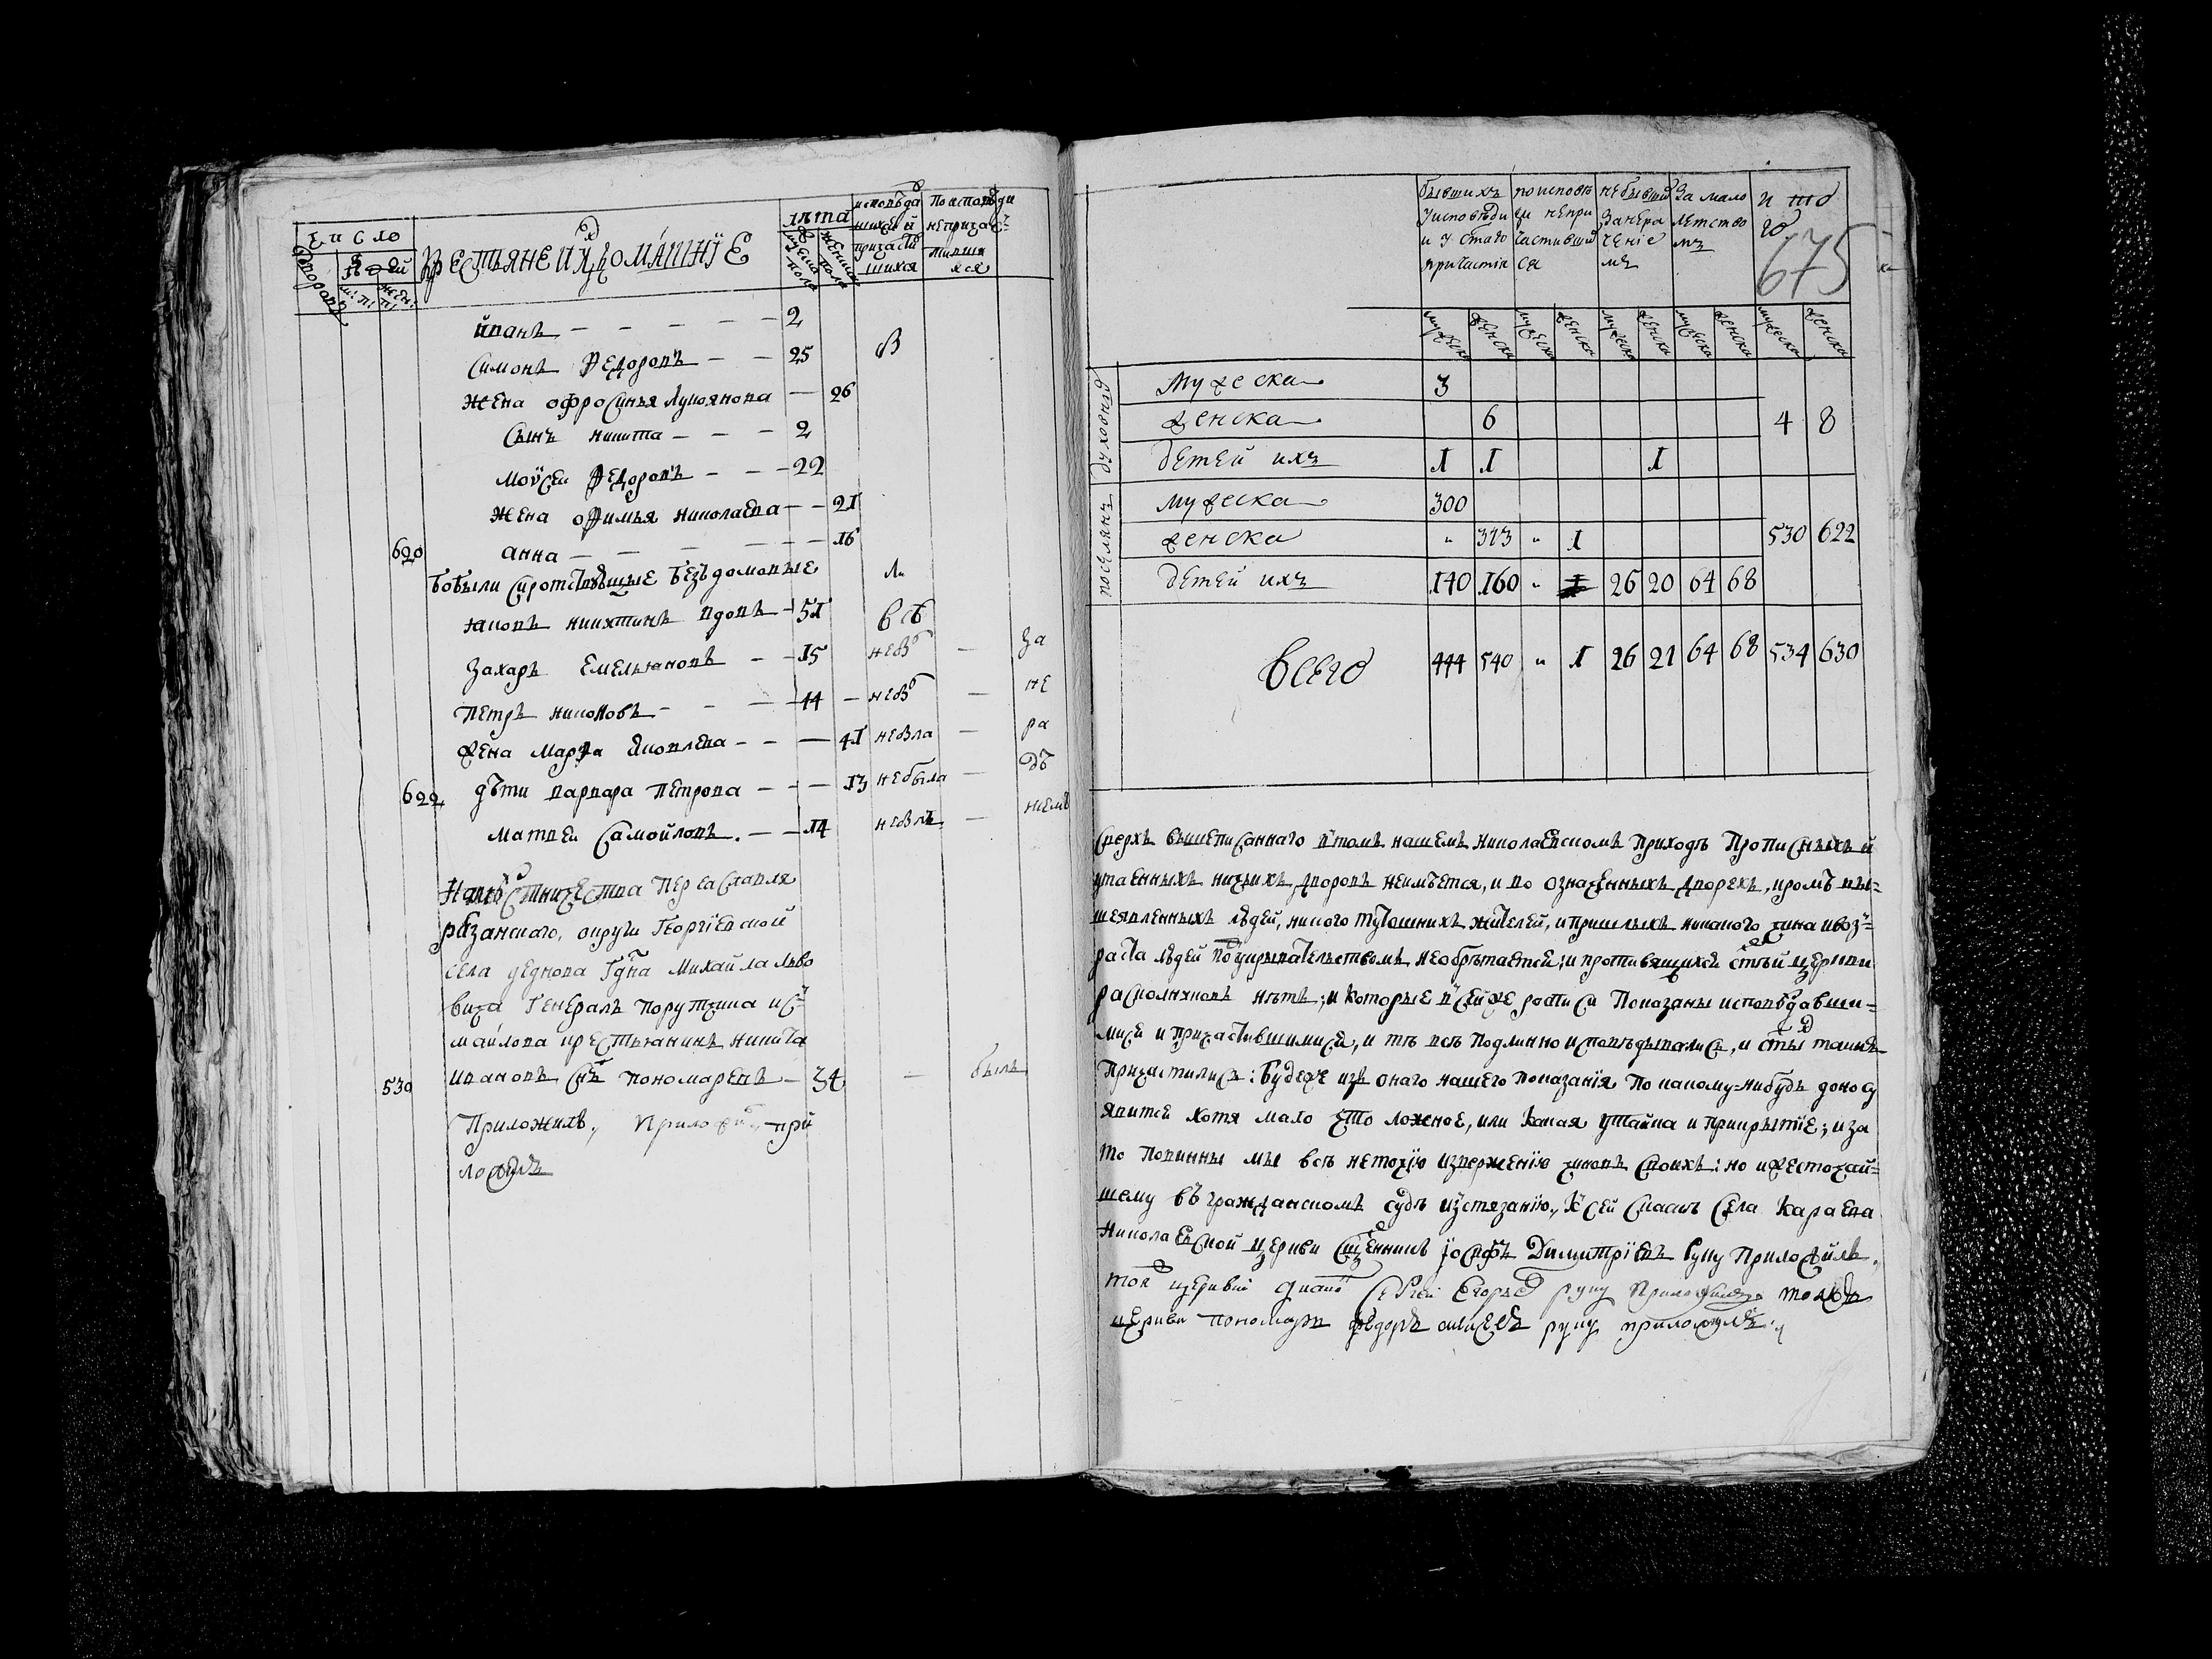 число
дворовъ
людей
м: п: жен: п:
крестьяне и их домашнїе
лѣта
мужеска пола
женска пола
исповѣдавшихся и причастившихся
По исповѣди непричастившихся
иванъ — — — — — 2
Симонъ Ѳедоровъ — — 25
жена офросинья Лукоянова — 26
Сынъ никита — — — 2
Моѵсеи Ѳедоровъ — — — 22
жена оѲимья николаева — — 21
620 анна — — — — — 16
бобыли сиротствующые безъдомовые
иаковъ никитинъ вдовъ — 51
Захаръ Емельяновъ — — 15 — за
Петръ никоновъ — — — 44 — — не
жена марѲа яковлева — — — 41 — ра
622 дѣти варвара петрова — — — 13 небыла — дѣ
матвеи Самойловъ. — — 14 — ниемъ
Намѣстничества переславля
рѧзанскаго, округи Георгїевской
села деднова Гдна Михайла Льво
вича Генералъ порутчика ис
майлова крестьянинъ никита
530 ивановъ снъ пономаревъ — 34 — былъ
Приложилъ, при
ложилъ
бывшихъ у исповѣди и у стаго причастія
по исповѣди непричастившихся
небывшихъ за нераченіемъ
За малолетствомъ
итого
675
мужеска женска мужеска женска мужеска женска мужеска женска мужеска женска
духовныя
мужеска 3
женска 6 4 8
детей ихъ 1 1 1
поселянъ
мужеска 300
женска " 373 " 1 530 622
детей ихъ 140 160 " 26 20 64 68
всего 444 540 " 1 26 21 64 68 534 630
Сверхъ вышеписаннаго в томъ нашемъ Николаевскомъ приходѣ прописныхъ и
утаенныхъ ничьихъ дворовъ неимѣется, и во означенныхъ дворехъ, кромѣ вы=
шеявленныхъ людей, никого тутошнихъ жителей, и пришлыхъ никакого чина и воз=
раста людей подукрывательствомъ необрѣтается; и противящихся стѣй церкви
расколниковъ нѣтъ; и которые в сей же росписи показаны исповѣдавши=
мися и причастившимися, и тѣ всѣ подлинно исповѣдывались, и стых таинъ
причастились: будеже изъ онаго нашего показанїя по какому-нибудь доносу
явится хотя мало что ложное, или какая утайка и прикрытїе; и за
то повинны мы всѣ неточїю извержению чиновъ своихъ: но и жесточай=
шему въ гражданскомъ судѣ истязанїю, К сей сказкѣ Села Караева
Николаевской церкви Сщенникъ Їосифъ Димитрїевъ руку приложилъ,
тоя церквии диаконъ Сергеи Егоровъ руку приложилъ тояжъ
церкви пономарь Ѳедоръ алисеевъ руку приложилъ